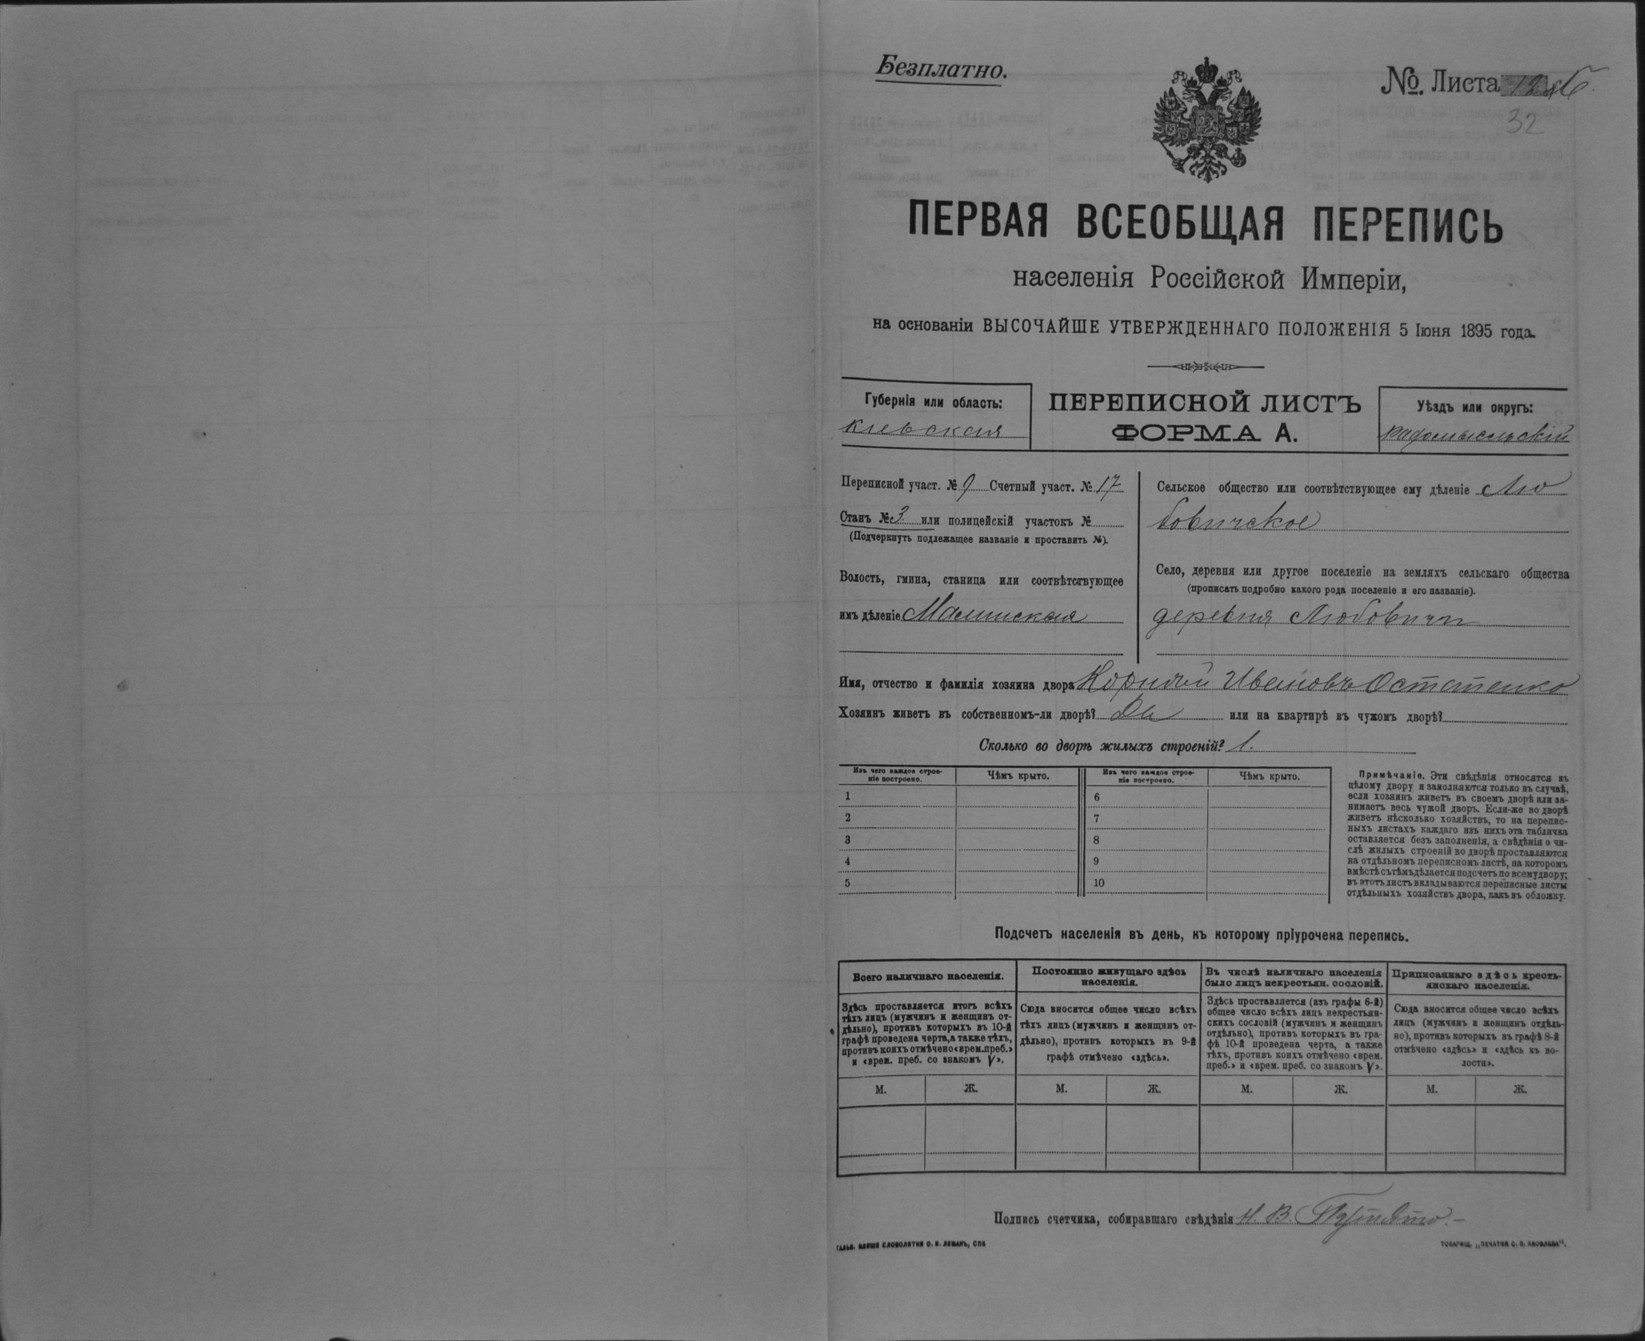 Безплатно.
№. Листа
32
ПЕРВАЯ ВСЕОБЩАЯ ПЕРЕПИСЬ
населенія Россійской Имперіи,
на основаніи ВЫСОЧАЙШЕ УТВЕРЖДЕННАГО ПОЛОЖЕНІЯ 5 Іюня 1895 года.
Губернія или область:
Кіевская
ПЕРЕПИСНОЙ ЛИСТЪ
ФОРМА А.
Уѣздъ или округъ:
Радомысльскій
Переписной участ. № 9 Счетный участ. № 17
Станъ № 3 или полицейскій участокъ №
(Подчеркнуть подлежащее названіе и проставить №).
Волость, гмина, станица или соотвѣтствующее
имъ дѣленіе Малинская
Сельское общество или соотвѣтствующее ему дѣленіе Лю
бовичское
Село, деревня или другое поселеніе на земляхъ сельскаго общества
(прописать подробно какого рода поселеніе и его названіе).
деревня Любовичи
Имя, отчество и фамилія хозяина двора Корній Ивановъ Остапенко
Хозяинъ живетъ въ собственномъ-ли дворѣ? Да или на квартирѣ въ чужомъ дворѣ?
Сколько во дворѣ жилыхъ строеній? 1.
Изъ чего каждое строе-
ніе построено.
Чѣмъ крыто.
Изъ чего каждое строе-
ніе построено.
Чѣмъ крыто.
1 6
2 7
3 8
4 9
5 10
Примѣчаніе. Эти свѣдѣнія относятся къ
цѣлому двору и заполняются только въ случаѣ,
если хозяинъ живетъ въ своемъ дворѣ или за-
нимаетъ весь чужой дворъ. Если-же во дворѣ
живетъ нѣсколько хозяйствъ, то на перепис-
ныхъ листахъ каждаго изъ нихъ эта табличка
оставляется безъ заполненія, а свѣдѣнія о чи-
слѣ жилыхъ строеній во дворѣ проставляются
на отдѣльномъ переписномъ листѣ, на которомъ
вмѣстѣ съ тѣмъ дѣлается подсчетъ по всему двору;
въ этотъ листъ вкладываются переписные листы
отдѣльныхъ хозяйствъ двора, какъ въ обложку.
Подсчетъ населенія въ день, къ которому пріурочена перепись.
Всего наличнаго населенія.
Здѣсь проставляется итогъ всѣхъ
тѣхъ лицъ (мужчинъ и женщинъ от-
дѣльно), противъ которыхъ въ 10-й
графѣ проведена черта, а также тѣхъ,
противъ коихъ отмѣчено «врем. преб.»
и «врем. преб. со знакомъ V».
Постоянно живущаго здѣсь
населенія.
Сюда вносится общее число всѣхъ
тѣхъ лицъ (мужчинъ и женщинъ от-
дѣльно), противъ которыхъ въ 9-й
графѣ отмѣчено «здѣсь».
Въ числѣ наличнаго населенія
было лицъ некрестьян. сословій.
Здѣсь проставляется (изъ графы 6-й)
общее число всѣхъ лицъ некрестьян-
скихъ сословій (мужчинъ и женщинъ
отдѣльно), противъ которыхъ въ гра-
фѣ 10-й проведена черта, а также
тѣхъ, противъ коихъ отмѣчено «врем.
преб.» и «врем. преб. со знакомъ V».
Приписаннаго здѣсь кресть-
янскаго населенія.
Сюда вносится общее число всѣхъ
лицъ (мужчинъ и женщинъ отдѣль-
но), противъ которыхъ въ графѣ 8-й
отмѣчено «здѣсь» и «здѣсь къ во-
лости».
М. Ж. М. Ж. М. Ж. М. Ж.
Подпись счетчика, собиравшаго свѣдѣнія Н. В.
ГАЛЬВ. КЛИШЕ СЛОВОЛИТНИ О. И. ЛЕМАНЪ, СПБ
ТОВАРИЩ. „ПЕЧАТНЯ С. П. ЯКОВЛЕВА".